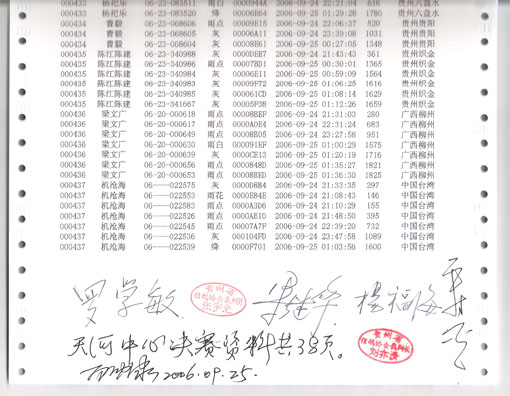 000433 桥杞乐 06-23-083511 雨白 0000944A 2006-09-24 22:21:04 616 贵州六盘水
000433 桥杞乐 06-23-083520 绛 00006E64 2006-09-25 01:29:28 1780 贵州六盘水
000434 曹毅 06-23-068606 雨点 00009E18 2006-09-24 22:06:37 520 贵州贵阳
000434 曹毅 06-23-068611 灰 0000A11A 2006-09-24 23:39:08 1031 贵州贵阳
000434 曹毅 06-23-068604 灰 00008E61 2006-09-25 00:27:05 1348 贵州贵阳
000435 陈江陈建 06-23-340988 灰 0000DEE7 2006-09-24 21:43:43 361 贵州织金
000435 陈江陈建 06-23-340986 雨点 00007BD1 2006-09-25 00:30:01 1365 贵州织金
000435 陈江陈建 06-23-340994 灰 00006E11 2006-09-25 00:59:09 1564 贵州织金
000435 陈江陈建 06-23-340983 灰 00009F72 2006-09-25 01:06:25 1616 贵州织金
000435 陈江陈建 06-23-340985 灰 000061CD 2006-09-25 01:08:14 1629 贵州织金
000435 陈江陈建 06-23-341667 灰 00005F38 2006-09-25 01:12:26 1659 贵州织金
000436 梁文广 06-20-000618 雨点 00008BEF 2006-09-24 21:31:03 280 广西柳州
000436 梁文广 06-20-000617 雨点 0000A0E4 2006-09-24 22:31:24 683 广西柳州
000436 梁文广 06-20-000649 雨点 00008B05 2006-09-24 23:27:58 951 广西柳州
000436 梁文广 06-20-000630 雨白 000091EF 2006-09-25 01:00:29 1575 广西柳州
000436 梁文广 06-20-000639 灰 0000CE13 2006-09-25 01:20:19 1716 广西柳州
000436 梁文广 06-20-000656 雨点 0000848D 2006-09-25 01:35:27 1821 广西柳州
000436 梁文广 06-20-000653 雨点 00008EED 2006-09-25 01:36:30 1825 广西柳州
000437 机沧海 06----022575 灰 0000D8B4 2006-09-24 21:33:35 297 中国台湾
000437 机沧海 06----022553 雨花 0000E84E 2006-09-24 21:08:43 146 中国台湾
000437 机沧海 06----022583 雨点 0000A3D6 2006-09-24 21:10:29 155 中国台湾
000437 机沧海 06----022526 雨点 0000AE10 2006-09-24 21:48:50 395 中国台湾
000437 机沧海 06----022545 雨点 00007A7F 2006-09-24 22:39:20 732 中国台湾
000437 机沧海 06----022536 灰 000104FD 2006-09-24 23:47:58 1089 中国台湾
000437 机沧海 06----022539 绛 0000F701 2006-09-25 01:03:56 1600 中国台湾
罗学敏 贵州省 杨福海
天河中心决赛资料共38页。
贵州省
信鸽协会裁判长
2006.09.25.